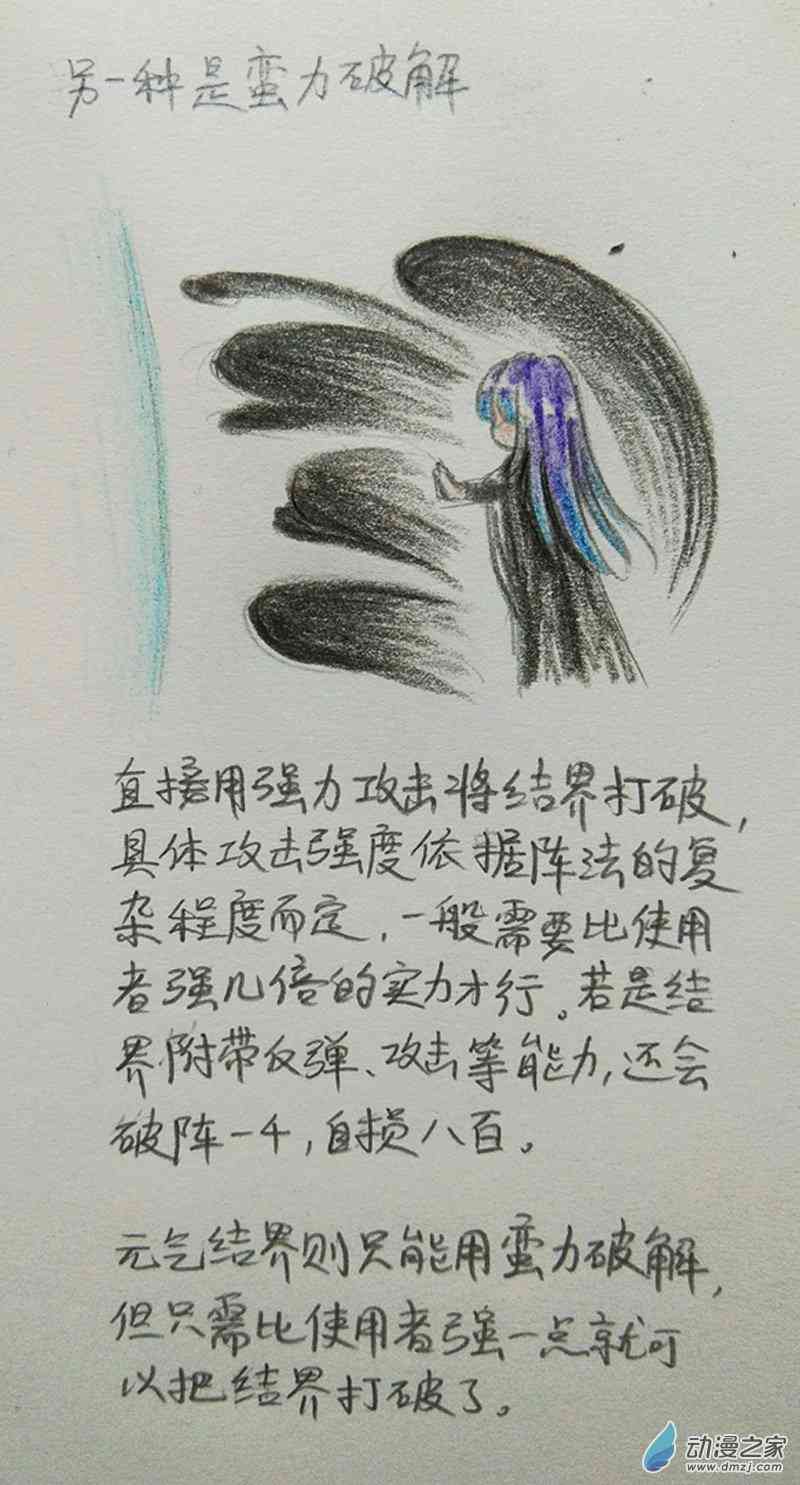 另一种是蛮力破解
直接用强力攻击将结界打破,
具体攻击强度依据阵法的复
杂程度而定,一般需要比使用
者强几倍的实力才行。若是结
界附带反弹、攻击等能力,还会
破阵一千,自损八百。
元气结界则只能用蛮力破解,
但只需比使用者强一点就可
以把结界打破了。
动漫之家
www.dmzj.com